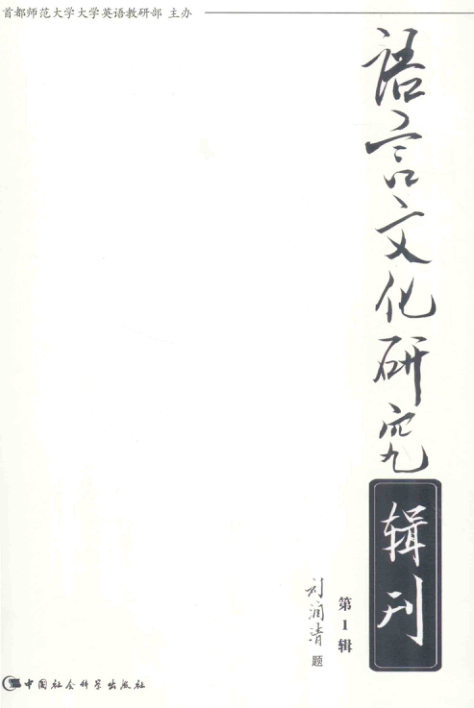 首都师范大学大学英语教研部 主办
語言文化研究
辑刊
第1辑
刘润清 题
中国社会科学出版社